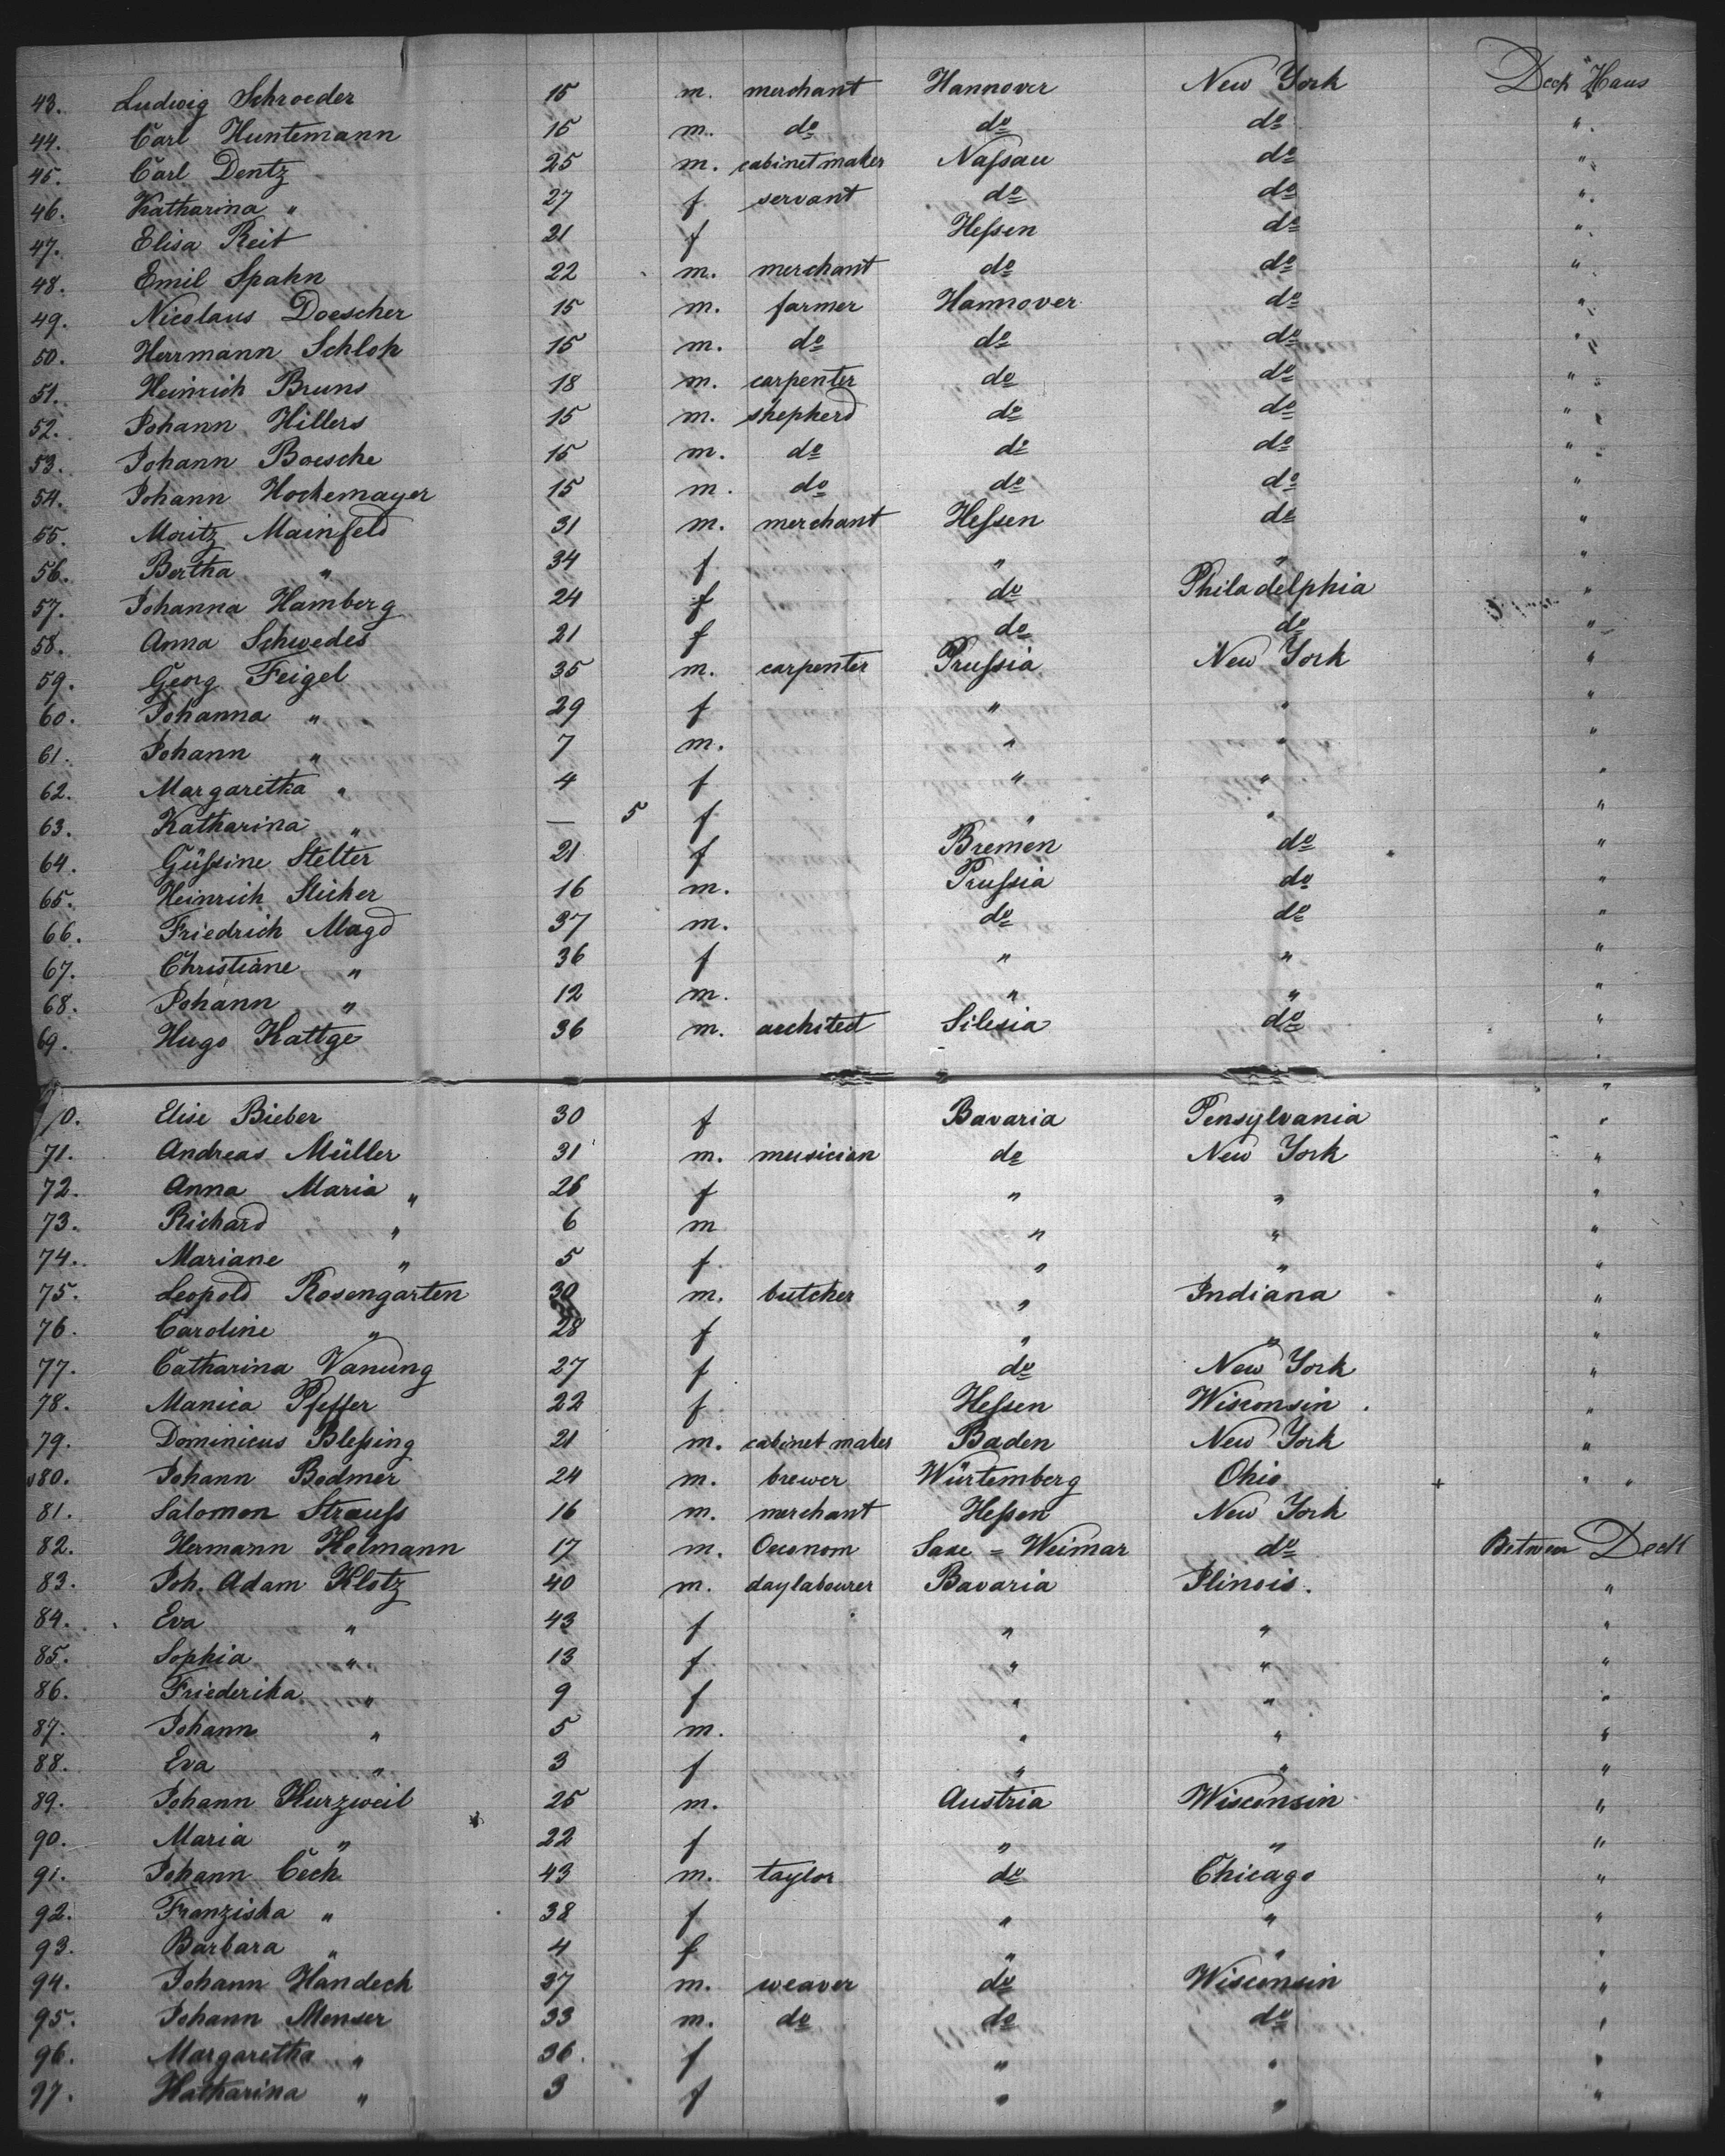 43. Ludwig Schroeder 15 m. merchant Hannover New York Deck Haus
44. Carl Huntemann 15 m. do do do "
45. Carl Dentz 25 m. cabinetmaker Naſsau do "
46. Katharina " 27 f servant do do "
47. Elisa Reit 21 f Heſsen do "
48. Emil Spahn 22 m. merchant do do "
49. Nicolaus Doescher 15 m. farmer Hannover do "
50. Herrmann Schloh 15 m. do do do "
51. Heinrich Bruns 18 m. carpenter do do "
52. Johann Hillers 15 m. shepherd do do "
53. Johann Boesche 15 m. do do do "
54. Johann Hockemayer 15 m. do do do "
55. Moritz Mainfeld 31 m. merchant Heſsen do "
56. Bertha " 34 f " " "
57. Johanna Hamberg 24 f do Philadelphia "
58. Anna Schwedes 21 f do do "
59. Georg Feigel 35 m. carpenter Pruſsia New York "
60. Johanna " 29 f " " "
61. Johann " 7 m. " " "
62. Margaretha " 4 f " " "
63. Katharina " — 5 f " " "
64. Güſsine Stelter 21 f Bremen do "
65. Heinrich Slicher 16 m. Pruſsia do "
66. Friedrich Magd 37 m. do do "
67. Christiane " 36 f " " "
68. Johann " 12 m. " " "
69. Hugo Kattge 36 m. architect Silesia do "
70. Elise Bieber 30 f Bavaria Pensylvania "
71. Andreas Müller 31 m. musician do New York "
72. Anna Maria " 26 f " " "
73. Richard " 6 m " " "
74. Mariane " 5 f " " "
75. Leopold Rosengarten 30 m. butcher " Indiana "
76. Caroline " 28 f " " "
77. Catharina Vanung 27 f do New York "
78. Manica Pfeffer 22 f Heſsen Wisconsin "
79. Dominicus Bleſsing 21 m. cabinet maker Baden New York "
80. Johann Bodmer 24 m. brewer Würtemberg Ohio + " "
81. Salomon Strauſs 16 m. merchant Heſsen New York
82. Hermann Holmann 17 m. Oeconom Saxe = Weimar do Between Deck
83. Joh. Adam Klotz 40 m. daylabourer Bavaria Ilinois. "
84. Eva " 43 f " " "
85. Sophia " 13 f " " "
86. Friederika " 9 f " " "
87. Johann " 5 m. " " "
88. Eva " 3 f " " "
89. Johann Kurzweil 25 m. Austria Wisconsin "
90. Maria " 22 f " " "
91. Johann Cech 43 m. taylor do Chicago "
92. Franziska " 38 f " " "
93. Barbara " 4 f " " "
94. Johann Handech 37 m. weaver do Wisconsin "
95. Johann Menser 33 m. do do do "
96. Margaretha " 36. f " " "
97. Katharina " 3 f " " "